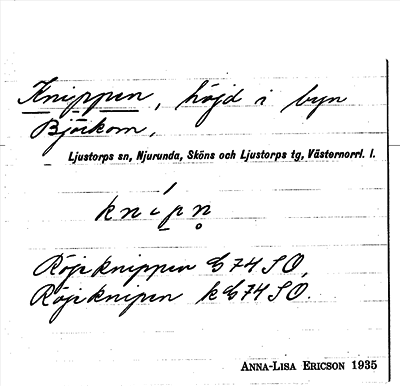 Knippen, höjd i byn
Björkom,
Ljustorps sn, Njurunda, Sköns och Ljustorps tg, Västernorrl. l.
knípn̥
Röjeknippen G 74 SO,
Röjeknipen k G 74 SO.
ANNA-LISA ERICSON 1935